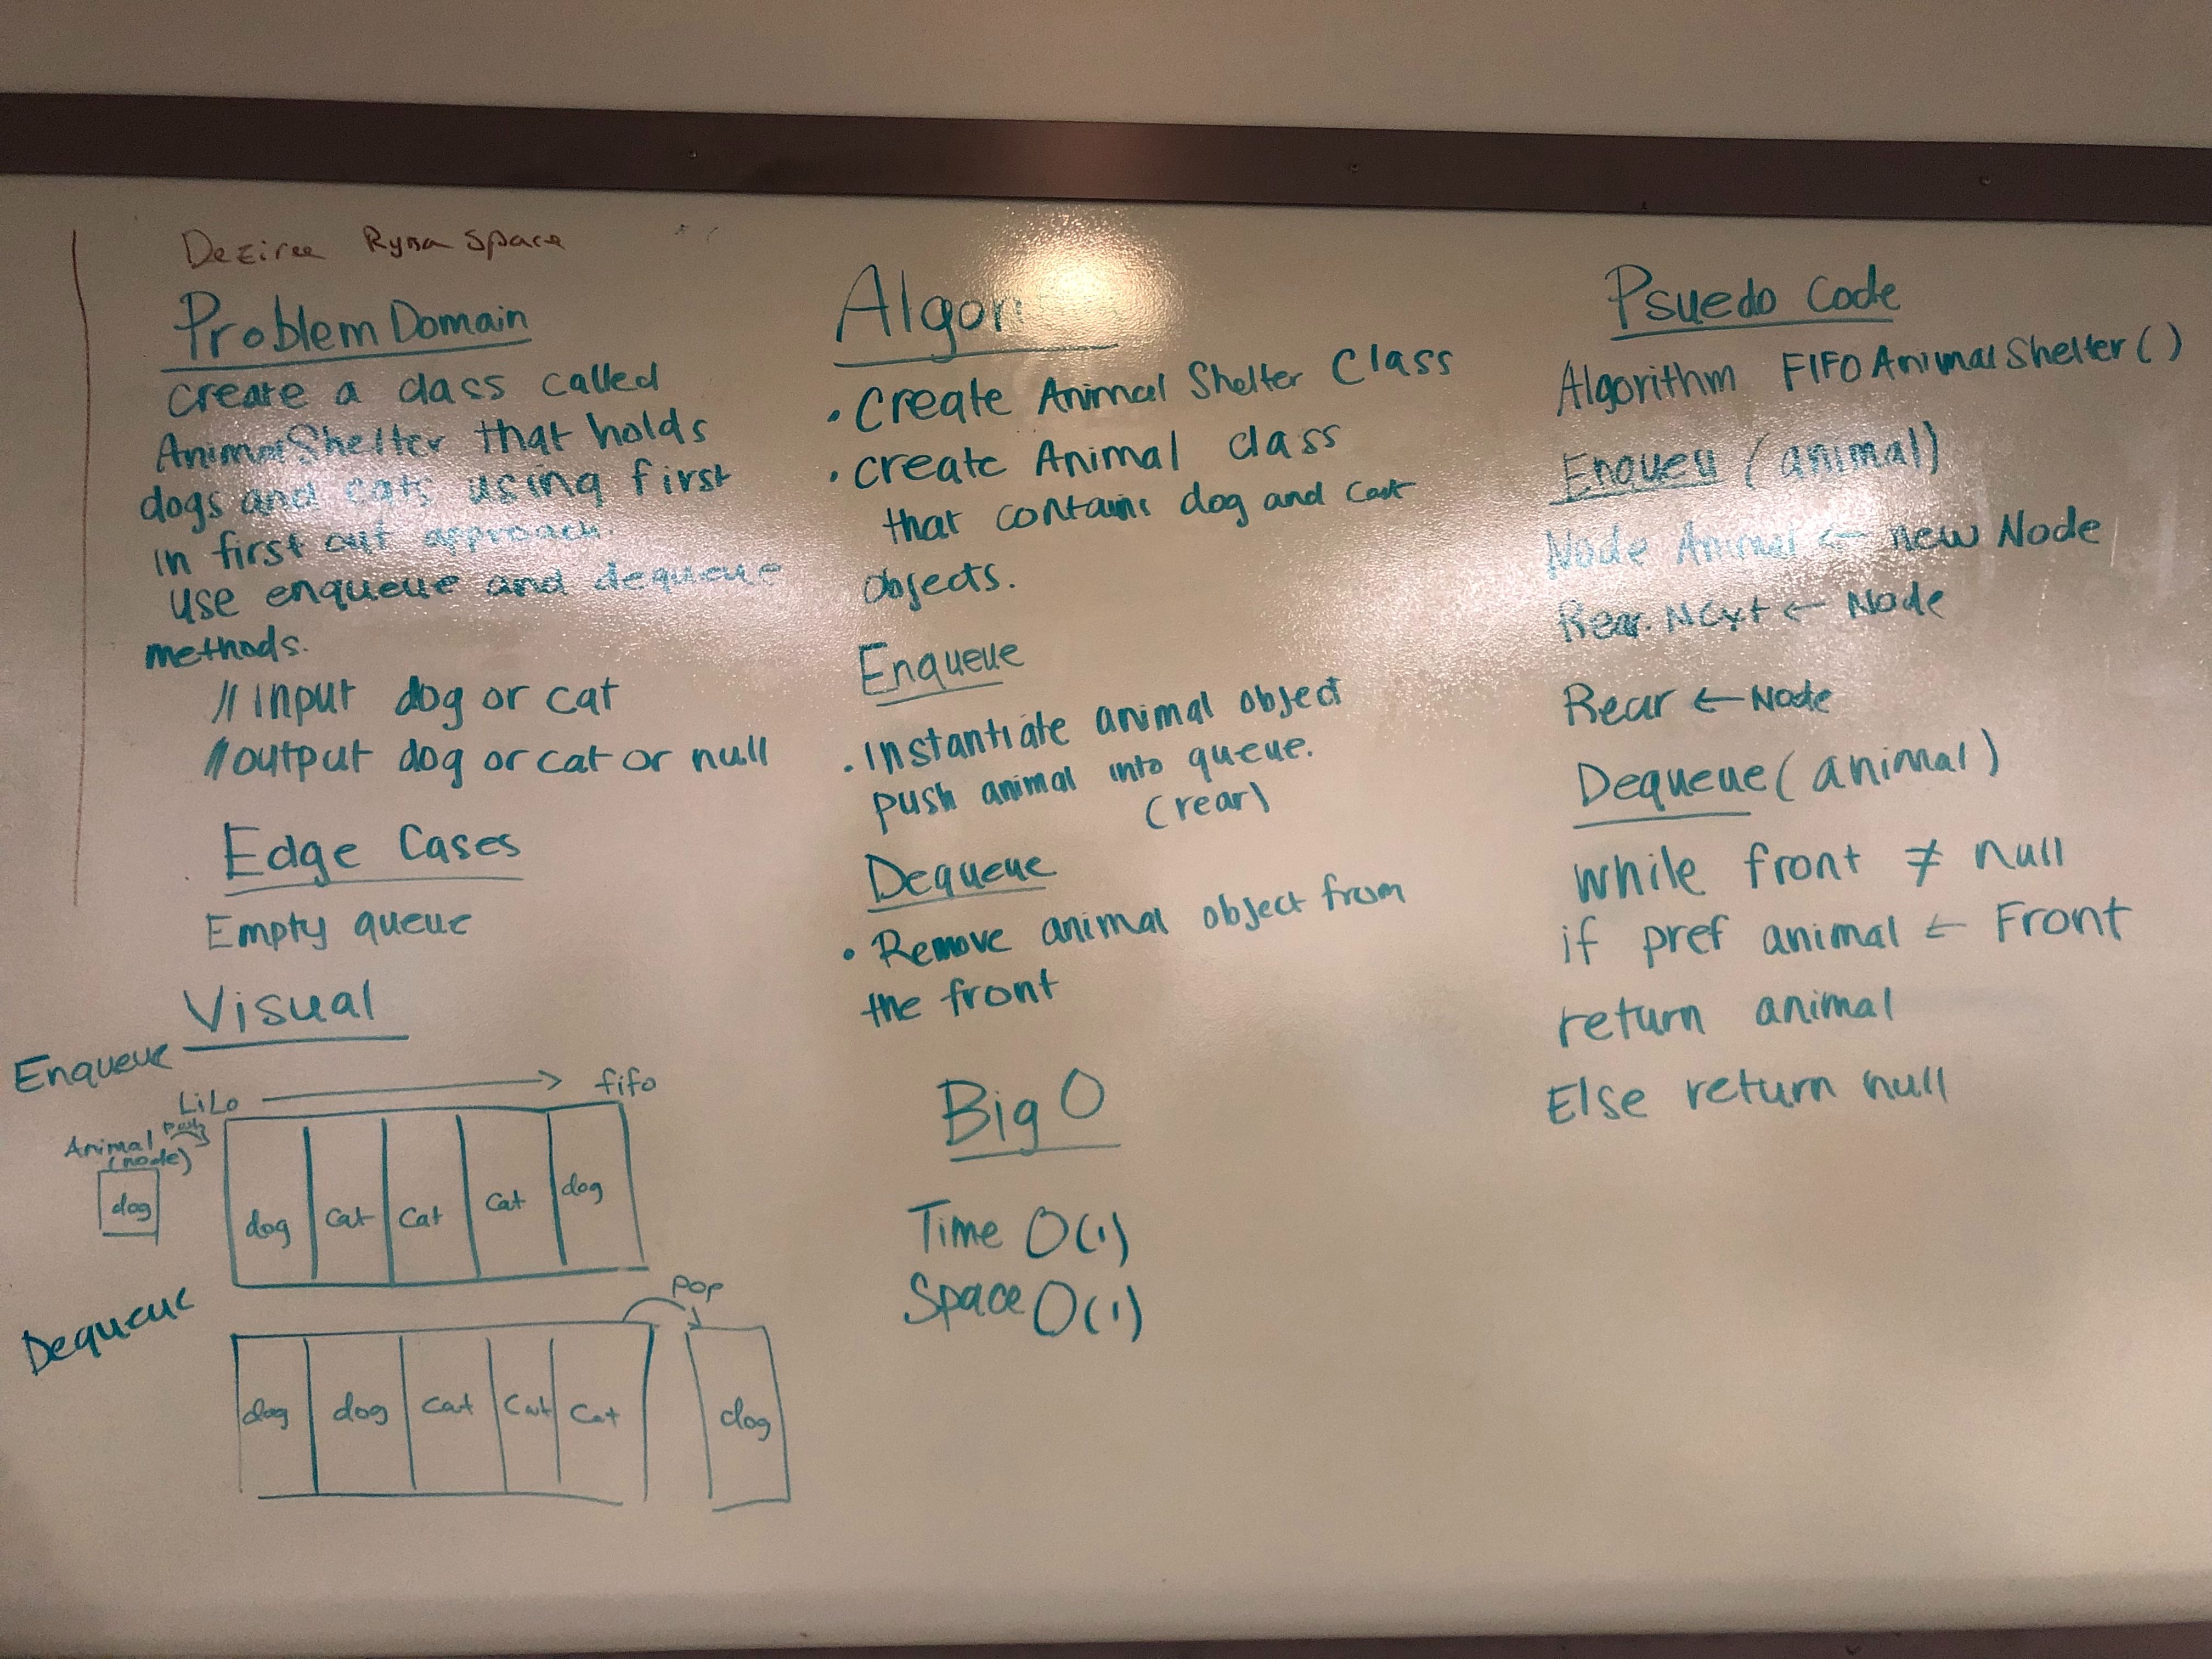 Desiree Ryna Space
Problem Domain
create a class called
AnimalShelter that holds
dogs and cats using first
in first out approach.
use enqueue and dequeue
methods.
// input dog or cat
// output dog or cat or null
Edge Cases
Empty queue
Visual
Enqueue
LiLo fifo
Animal push
(node)
dog
dog cat cat cat dog
Dequeue
pop
dog dog cat cat cat dog
Algori
• Create Animal Shelter Class
• create Animal class
that contains dog and cat
objects.
Enqueue
• Instantiate animal object
push animal into queue.
(rear)
Dequeue
• Remove animal object from
the front
Big O
Time O(1)
Space O(1)
Psuedo Code
Algorithm FIFOAnimalShelter()
Enqueu (animal)
Node Animal ← new Node
Rear.Next ← Node
Rear ← Node
Dequeue(animal)
while front ≠ null
if pref animal ← Front
return animal
Else return null